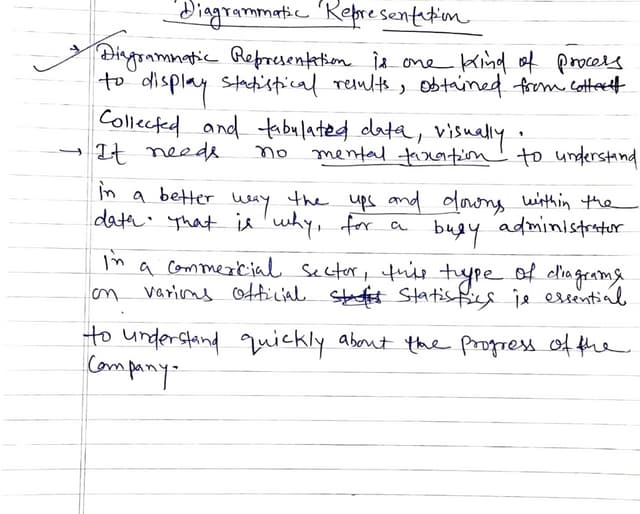 Diagrammatic Representation
→ Diagrammatic Representation is one kind of process
to display statistical results, obtained from collect
Collected and tabulated data, visually.
→ It needs no mental taxation to understand
in a better way the ups and downs within the
data. That is why, for a busy administrator
in a commercial sector, this type of diagrams
on various official Statistics is essential
to understand quickly about the progress of the
Company.